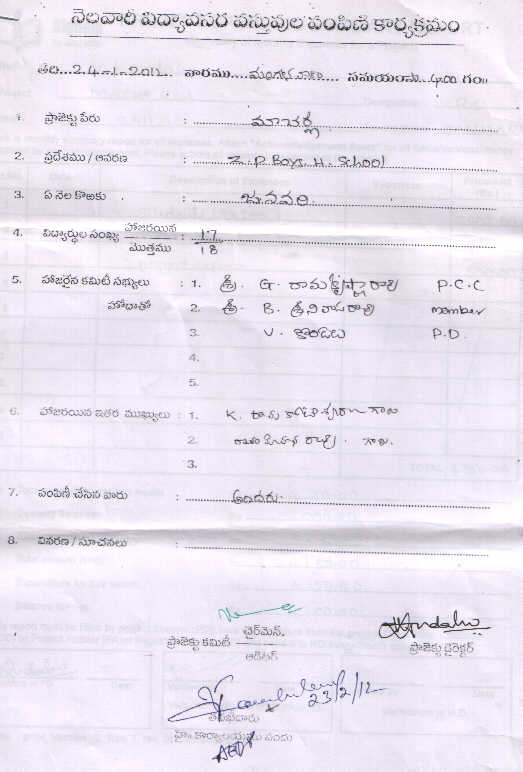 నెలవారీ విద్యావసర వస్తువుల పంపిణీ కార్యక్రమం
తేది...24-1-2012 వారము....మంగళవారం సమయంసా..4.00 గం॥
1. ప్రాజెక్టు పేరు : మాచర్ల
2. ప్రదేశము / ఆవరణ : Z.P. Boys. H. School
3. ఏ నెల కొఱకు : జనవరి
4. విద్యార్థుల సంఖ్య హాజరయిన / మొత్తము : 17 / 18
5. హాజరైన కమిటీ సభ్యులు : 1. శ్రీ. G. రామకృష్ణారావు P.C.C
హోదాతో 2. శ్రీ. B. శ్రీనివాసరావు member
3. V. కొండలు P.D.
4.
5.
6. హాజరయిన ఇతర ముఖ్యులు : 1. K. రామ కోటేశ్వరరావు గారు
2. రావు. గారు.
3.
7. పంపిణీ చేసిన వారు : అందరు.
8. వివరణ / సూచనలు :
ప్రాజెక్టు కమిటీ ఛైర్‌మెన్. / ఆడిటర్
ప్రాజెక్టు డైరెక్టర్
23/2/12
తనిఖీదారు
హైo కార్యాలయము పందు